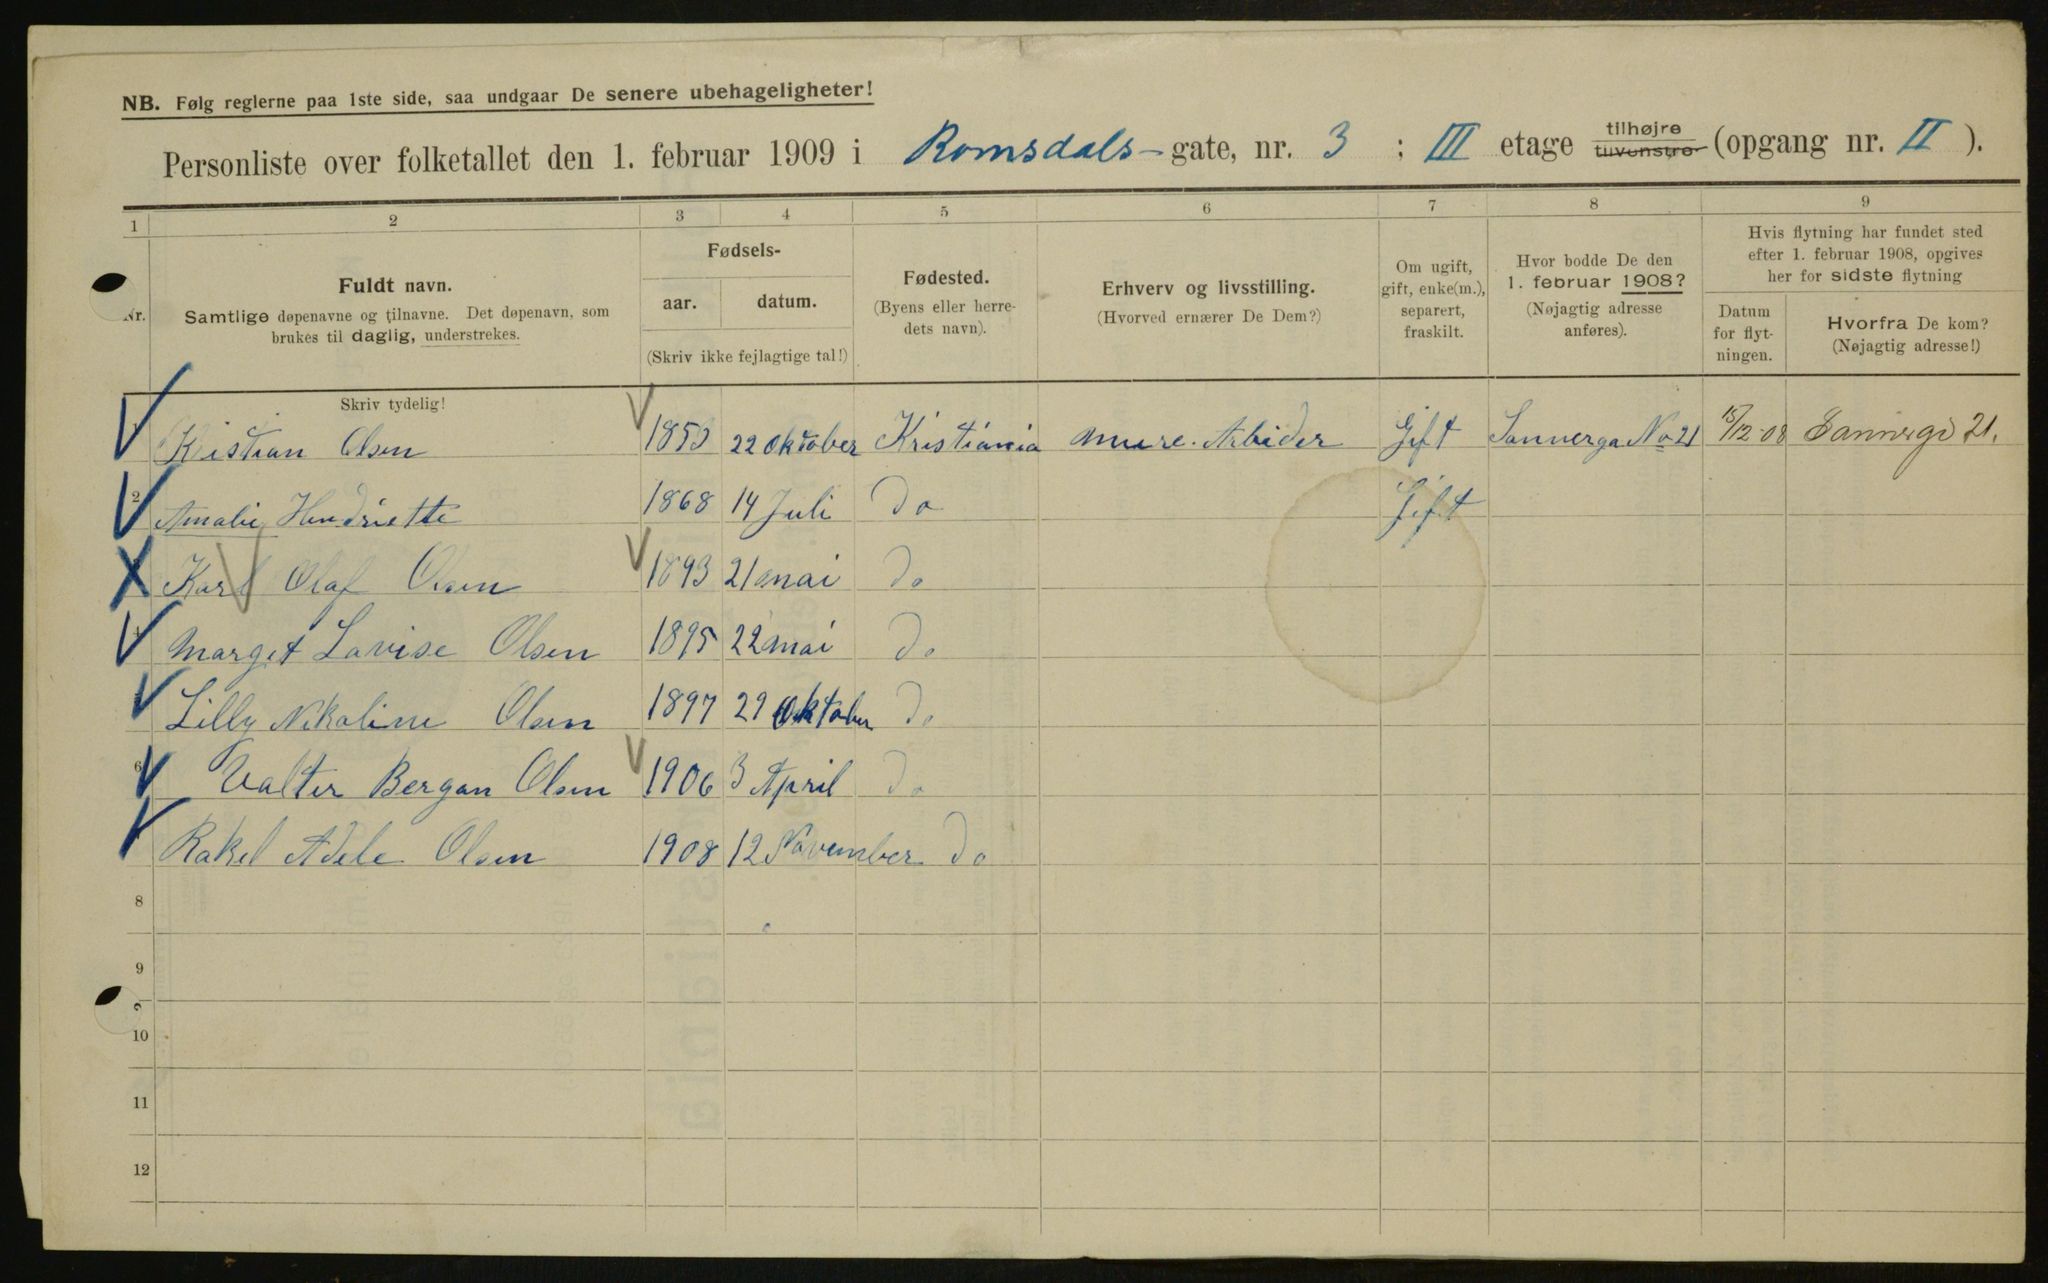 NB. Følg reglerne paa 1ste side, saa undgaar De senere ubehageligheter!
Personliste over folketallet den 1. februar 1909 i Romsdals-gate, nr. 3 ; III etage tilhøjre tilvenstre (opgang nr. II ).
1 2 3 4 5 6 7 8 9
Nr.
Fuldt navn.
Samtlige døpenavne og tilnavne. Det døpenavn, som
brukes til daglig, understrekes.
Fødsels-
aar. datum.
(Skriv ikke fejlagtige tal!)
Fødested.
(Byens eller herre-
dets navn).
Erhverv og livsstilling.
(Hvorved ernærer De Dem?)
Om ugift,
gift, enke(m.),
separert,
fraskilt.
Hvor bodde De den
1. februar 1908?
(Nøjagtig adresse
anføres).
Hvis flytning har fundet sted
efter 1. februar 1908, opgives
her for sidste flytning
Datum
for flyt-
ningen.
Hvorfra De kom?
(Nøjagtig adresse!)
Skriv tydelig!
Kristian Olsen 1853 22 oktober Kristiania mure. Arbider Gift Sannerga No 21 15/12-08 Sannergd 21.
2 Amalie Hendriette 1868 14 Juli Do Gift
Karl Olaf Olsen 1893 21 mai Do
4 Marget Lovise Olsen 1895 22 mai Do
Lilly Nikoline Olsen 1897 29 oktober Do
6 Valter Bergan Olsen 1906 3 April Do
Rakel Adele Olsen 1908 12 November Do
8
9
10
11
12